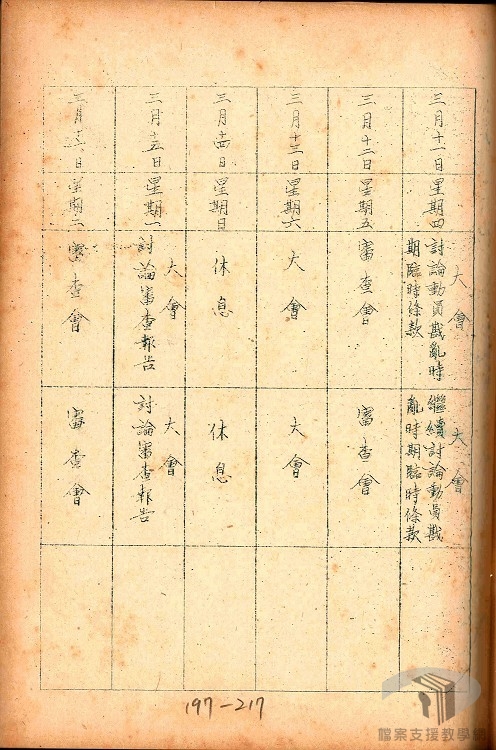 三月十一日
星期四
大會
討論動員戡亂時
期臨時條款
大會
繼續討論動員戡
亂時期臨時條款
三月十二日
星期五
審查會
審查會
三月十三日
星期六
大會
大會
三月十四日
星期日
休息
休息
三月十五日
星期一
大會
討論審查報告
大會
討論審查報告
三月十六日
星期二
審查會
審查會
197-217
檔案支援教學網